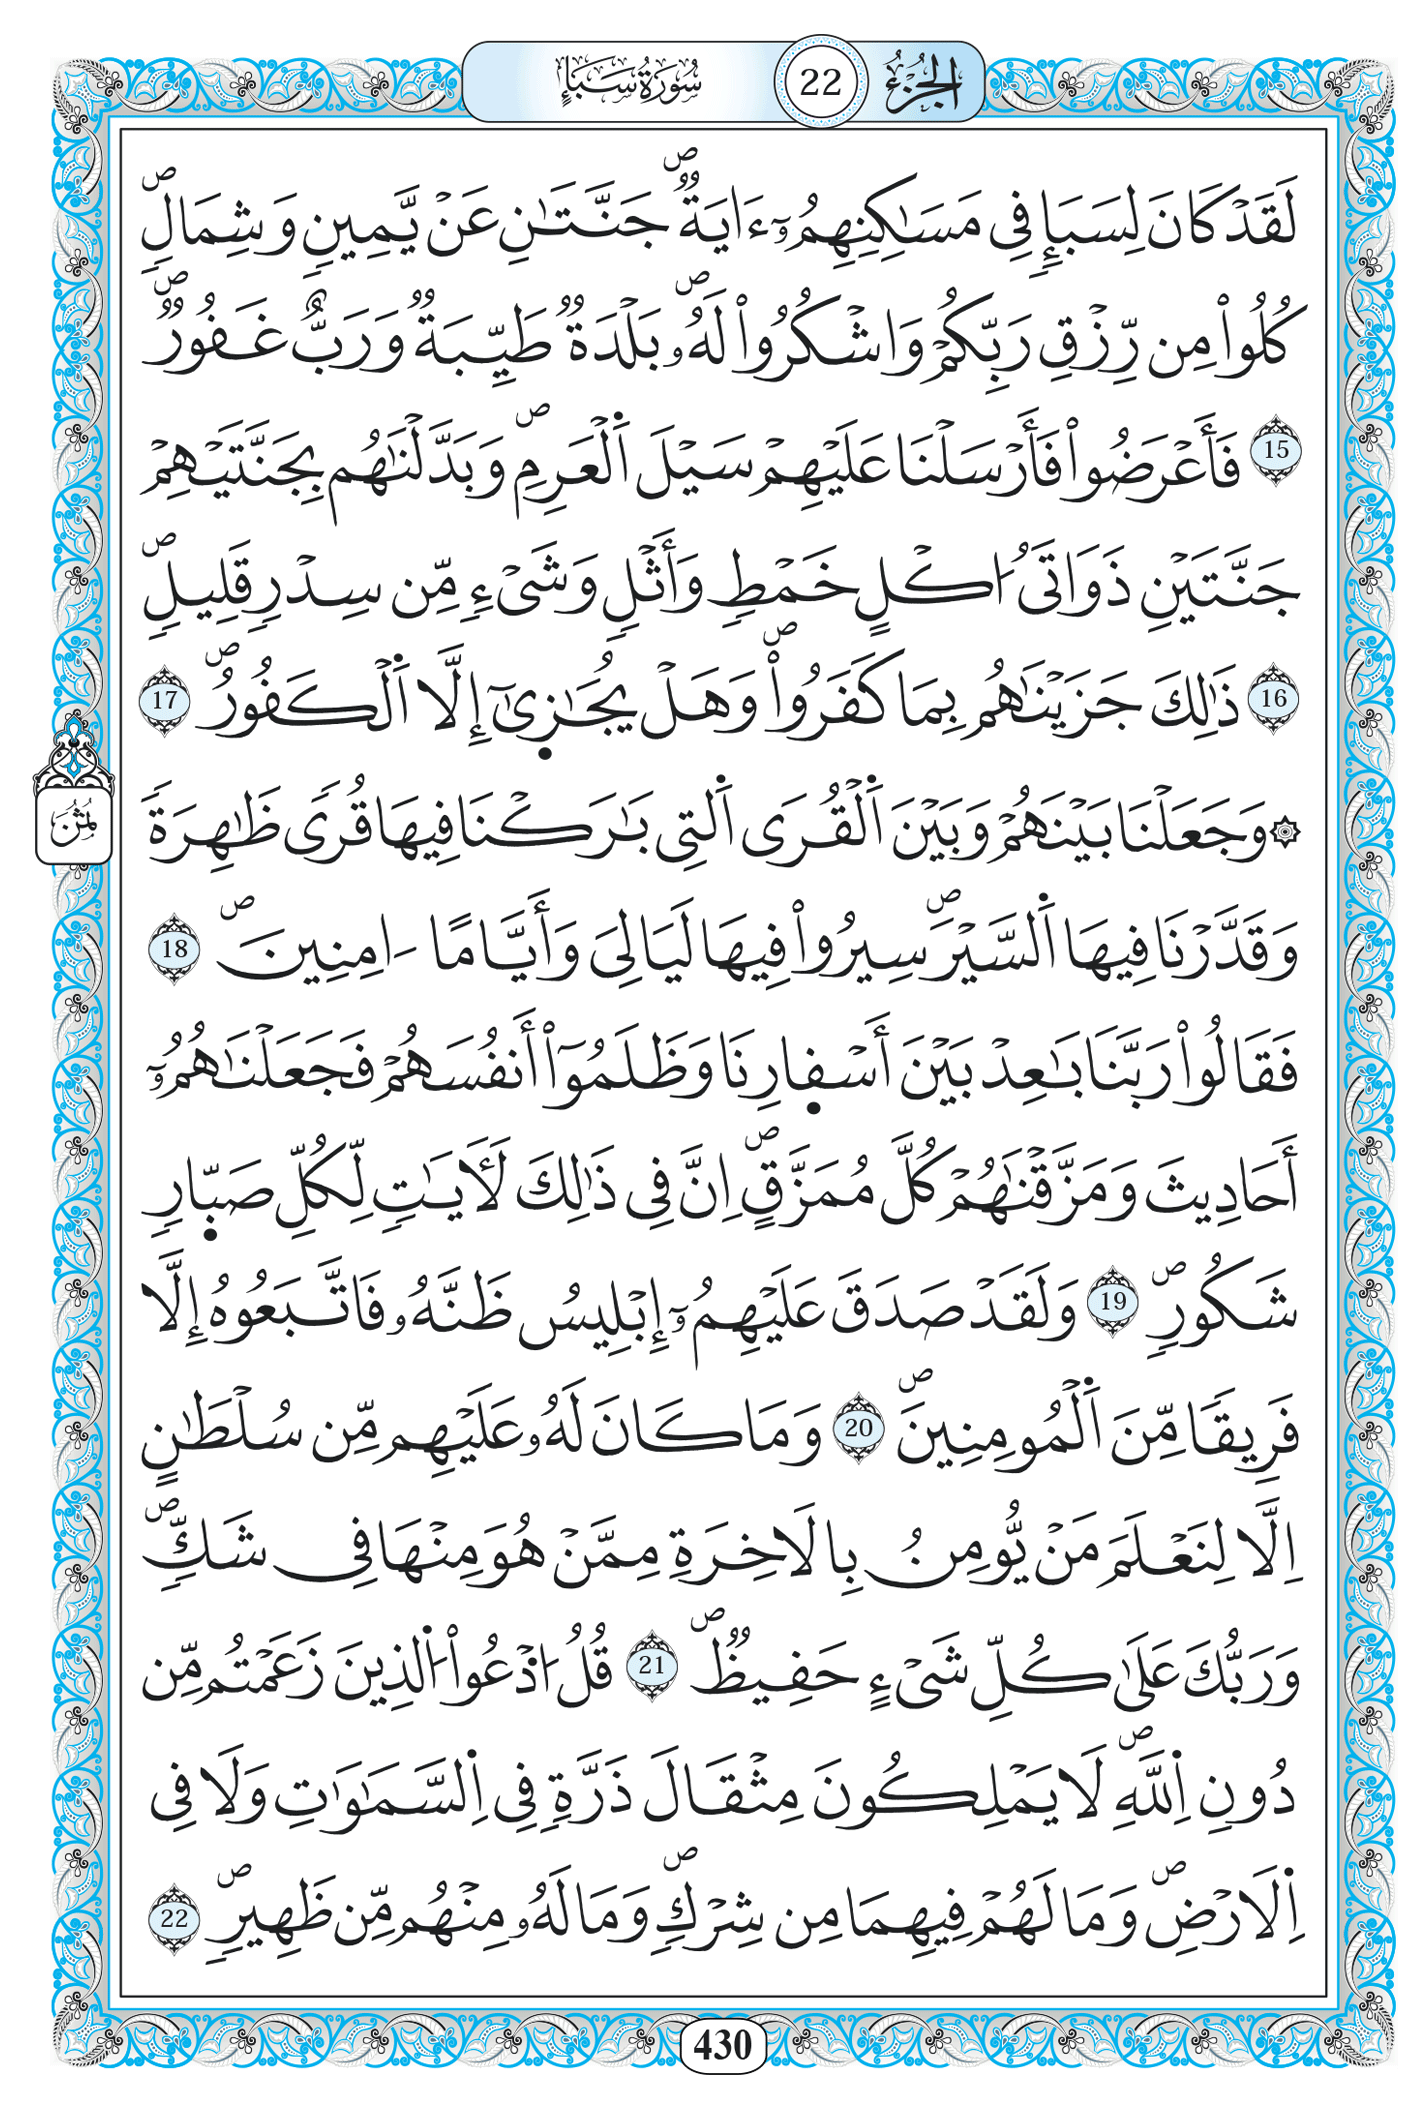 الجزء 22 سورة سبإ
لَقَدْ كَانَ لِسَبَإٖ فِي مَسَٰكِنِهِمُۥٓ ءَايَةٞۖ جَنَّتَٰنِ عَنْ يَّمِينٖ وَشِمَالٖۖ
كُلُواْ مِن رِّزْقِ رَبِّكُمْ وَاشْكُرُواْ لَهُۥۖ بَلْدَةٞ طَيِّبَةٞ وَرَبٌّ غَفُورٞۖ
15 فَأَعْرَضُواْ فَأَرْسَلْنَا عَلَيْهِمْ سَيْلَ اَ۬لْعَرِمِۖ وَبَدَّلْنَٰهُم بِجَنَّتَيْهِمْ
جَنَّتَيْنِ ذَوَاتَىُ ا۟كْلٍ خَمْطٖ وَأَثْلٖ وَشَيْءٖ مِّن سِدْرٖ قَلِيلٖۖ
16 ذَٰلِكَ جَزَيْنَٰهُم بِمَا كَفَرُواْۖ وَهَلْ يُجَٰزِىٰٓ إِلَّا اَ۬لْكَفُورُۖ 17
۞ وَجَعَلْنَا بَيْنَهُمْ وَبَيْنَ اَ۬لْقُرَى اَ۬لتِي بَٰرَكْنَا فِيهَا قُرىٗ ظَٰهِرَةٗ
وَقَدَّرْنَا فِيهَا اَ۬لسَّيْرَۖ سِيرُواْ فِيهَا لَيَالِيَ وَأَيَّاماً اٰمِنِينَۖ 18
فَقَالُواْ رَبَّنَا بَٰعِدْ بَيْنَ أَسْفِارِنَا وَظَلَمُوٓاْ أَنفُسَهُمْ فَجَعَلْنَٰهُمُۥٓ
أَحَادِيثَ وَمَزَّقْنَٰهُمْ كُلَّ مُمَزَّقٍۖ اِنَّ فِي ذَٰلِكَ لَأٓيَٰتٖ لِّكُلِّ صَبِّارٖ
شَكُورٖۖ 19 وَلَقَدْ صَدَقَ عَلَيْهِمُۥٓ إِبْلِيسُ ظَنَّهُۥ فَاتَّبَعُوهُ إِلَّا
فَرِيقاٗ مِّنَ اَ۬لْمُومِنِينَۖ 20 وَمَا كَانَ لَهُۥ عَلَيْهِم مِّن سُلْطَٰنٍ
اِلَّا لِنَعْلَمَ مَنْ يُّومِنُ بِالَاخِرَةِ مِمَّنْ هُوَ مِنْهَا فِي شَكّٖۖ
وَرَبُّكَ عَلَىٰ كُلِّ شَيْءٍ حَفِيظٞۖ 21 قُلُ اُ۟دْعُواْ اُ۬لذِينَ زَعَمْتُم مِّن
دُونِ اِ۬للَّهِۖ لَا يَمْلِكُونَ مِثْقَالَ ذَرَّةٖ فِي اِ۬لسَّمَٰوَٰتِ وَلَا فِي
اِ۬لَارْضِۖ وَمَا لَهُمْ فِيهِمَا مِن شِرْكٖۖ وَمَا لَهُۥ مِنْهُم مِّن ظَهِيرٖۖ 22
ثمن
430